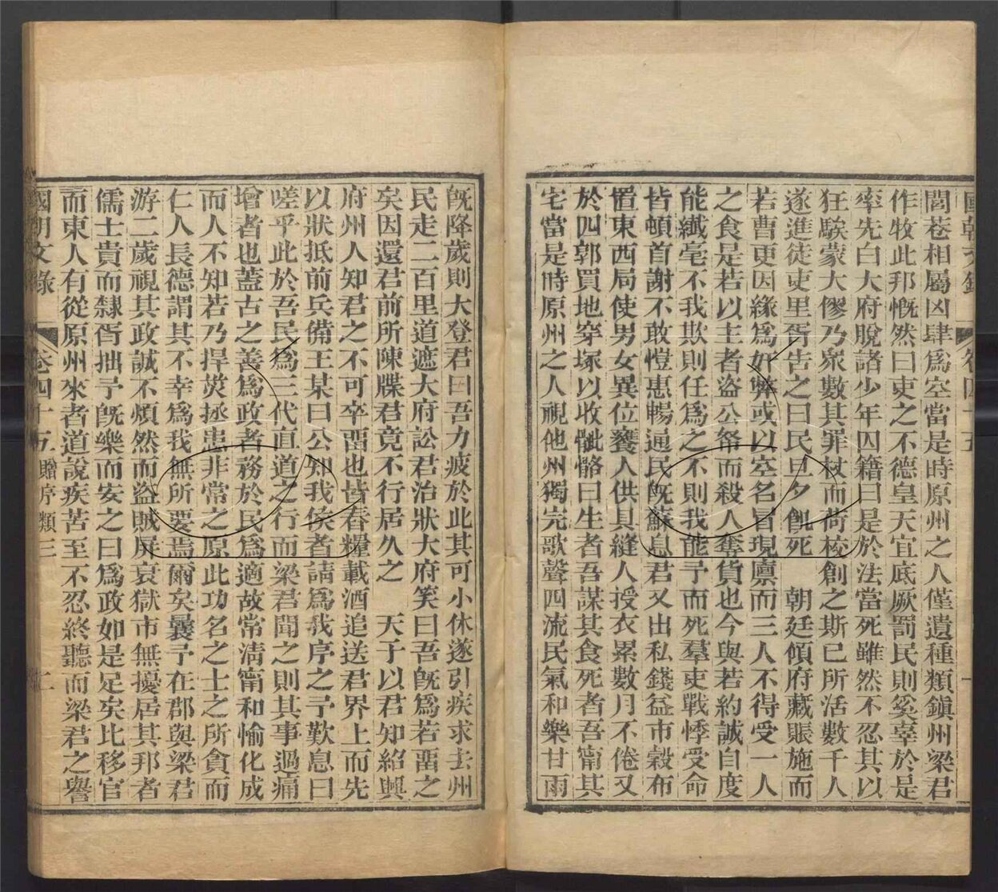 國朝文錄 卷四十五
閭巷相屬凶肆爲空當是時原州之人僅遺種類鎭州梁君
作牧此邦慨然曰吏之不德皇天宜底厥罰民則奚辜於是
率先白大府脫諸少年囚籍曰是於法當死雖然不忍其以
狂騃蒙大僇乃衆數其罪杖而荷校創之斯已所活數千人
遂進徒吏里胥告之曰民旦夕飢死 朝廷傾府藏賑施而
若曹更因緣爲奸弊或以空名冒現廩而三人不得受一人
之食是若以主者盜公帑而殺人奪貨也今與若約誠自度
能纖毫不我欺則任爲之不則我能予而死羣吏戰悸受命
皆頓首謝不敢愷惠暢通民旣蘇息君又出私錢益市穀布
置東西局使男女異位養人供具縫人授衣累數月不倦又
於四郭買地穿塚以收骴骼曰生者吾謀其食死者吾甯其
宅當是時原州之人視他州獨完歌聲四流民氣和樂甘雨
旣降歲則大登君曰吾力疲於此其可小休遂引疾求去州
民走二百里道遮大府訟君治狀大府笑曰吾旣爲若畱之
矣因還君前所陳牒君竟不行居久之 天子以君知紹興
府州人知君之不可卒畱也皆舂糧載酒追送君界上而先
以狀抵前兵備王某曰公知我侯者請爲我序之予歎息曰
嗟乎此於吾民爲三代直道之行而梁君聞之則其事過痛
增者也蓋古之善爲政者務於民爲適故常淸甯和愉化成
而人不知若乃捍菑拯患非常之原此功名之士之所貪而
仁人長德謂其不幸爲我無所要焉爾矣曩予在郡與梁君
游二歲視其政誠不煩然而盜賊屏衰獄市無擾居其邦者
儒士貴而隸胥拙予旣樂而安之曰爲政如是足矣比移官
而東人有從原州來者道說疾苦至不忍終聽而梁君之譽
國朝文錄 卷四十五 贈序類三 二